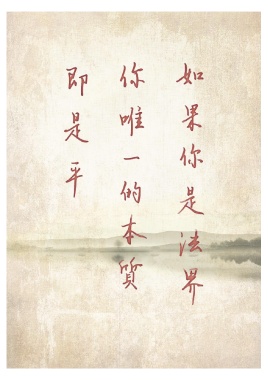 如果你是法界
你唯一的本質
即是平